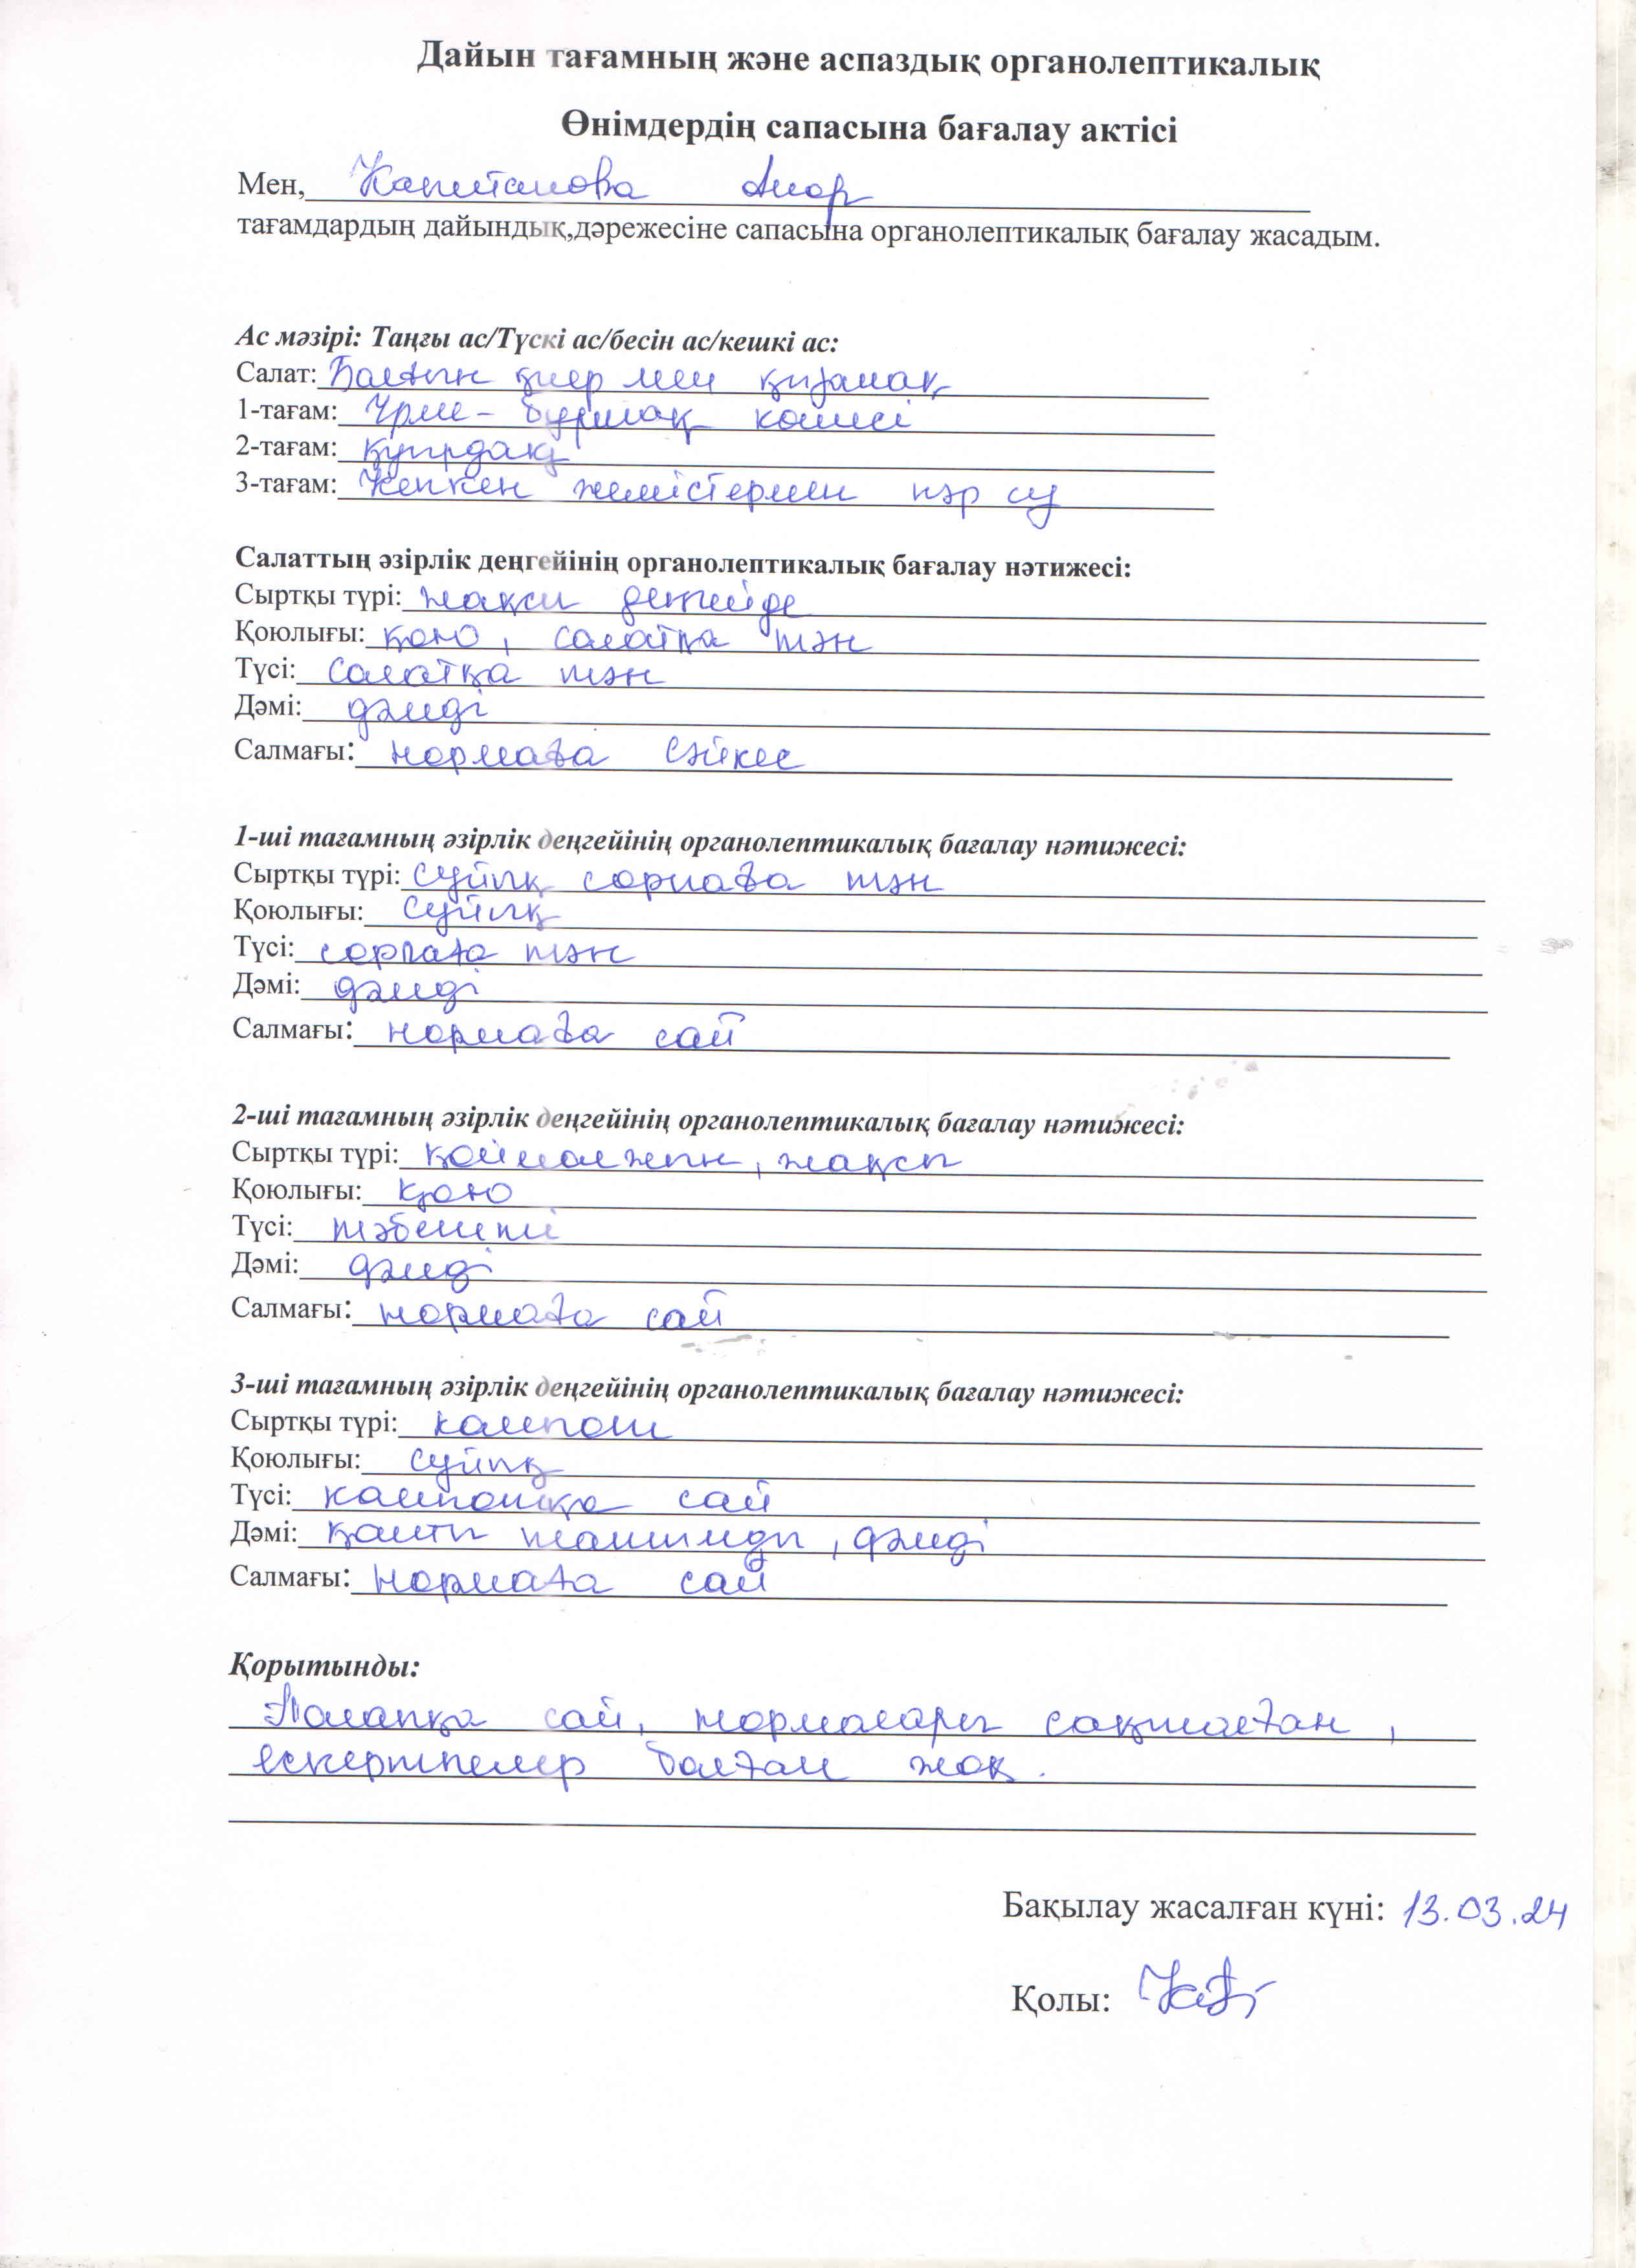 Дайын тағамның және аспаздық органолептикалық
Өнімдердің сапасына бағалау актісі
Мен, Капитанова Анар
тағамдардың дайындық,дәрежесіне сапасына органолептикалық бағалау жасадым.
Ас мәзірі: Таңғы ас/Түскі ас/бесін ас/кешкі ас:
Салат: Балғын қияр мен қызанақ
1-тағам: Үрме - бұршақ көжесі
2-тағам: қуырдақ
3-тағам: Кепкен жемістермен нәр су
Салаттың әзірлік деңгейінің органолептикалық бағалау нәтижесі:
Сыртқы түрі: жақсы деңгейде
Қоюлығы: қою, салатқа тән
Түсі: салатқа тән
Дәмі: дәмді
Салмағы: нормаға сәйкес
1-ші тағамның әзірлік деңгейінің органолептикалық бағалау нәтижесі:
Сыртқы түрі: сұйық сорпаға тән
Қоюлығы: сұйық
Түсі: сорпаға тән
Дәмі: дәмді
Салмағы: нормаға сай
2-ші тағамның әзірлік деңгейінің органолептикалық бағалау нәтижесі:
Сыртқы түрі: қоймалжың, жақсы
Қоюлығы: қою
Түсі: тәбетті
Дәмі: дәмді
Салмағы: нормаға сай
3-ші тағамның әзірлік деңгейінің органолептикалық бағалау нәтижесі:
Сыртқы түрі: компот
Қоюлығы: сұйық
Түсі: компотқа сай
Дәмі: қанты тағымды, дәмді
Салмағы: нормаға сай
Қорытынды:
Талапқа сай, нормалары сақталған,
ескертпелер болған жоқ.
Бақылау жасалған күні: 13.03.24
Қолы: